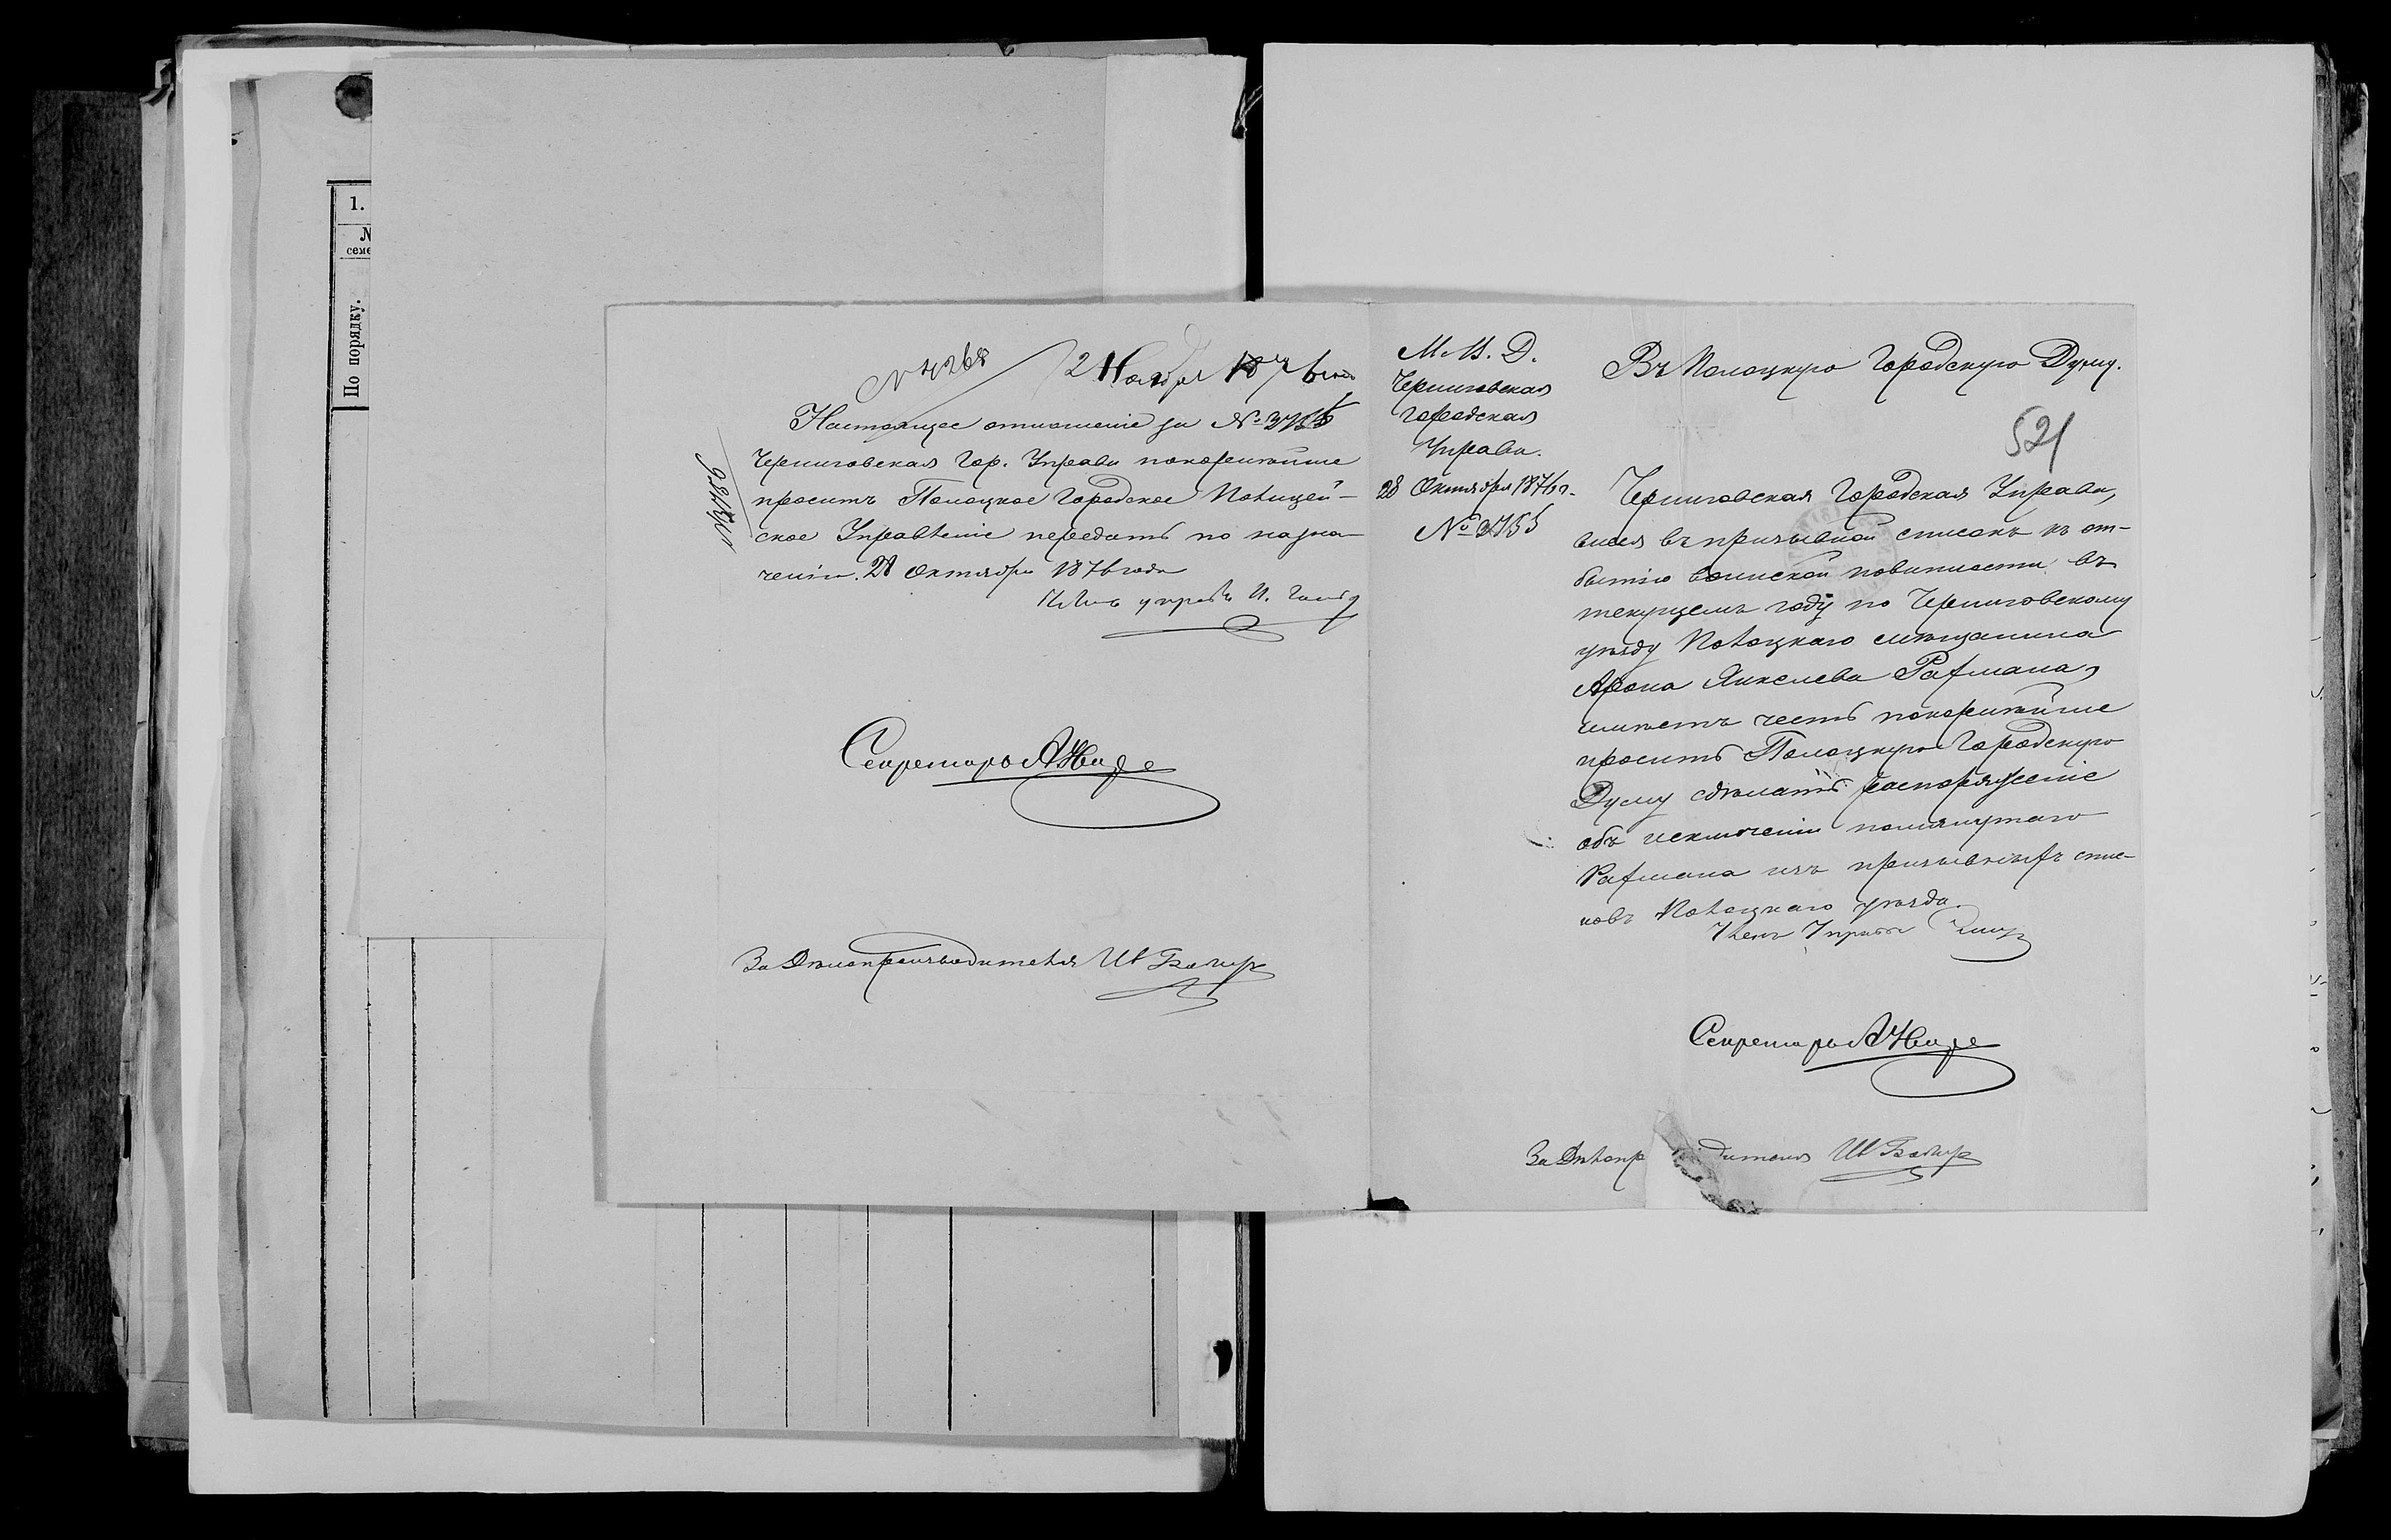 1.
№
семе
По порядку.
№ 4268
2 Ноября 1876 года
Настоящее отношеніе за № 3755
Черниговская Гор. Управа покорнѣйше
проситъ Полоцкое Городское Полицей-
ское Управленіе передать по назна-
ченію. 28 Октября 1876 года
Членъ управы
Секретарь
За Дѣлопроизводителя
М. В. Д.
Черниговская
городская
Управа.
28 Октября 1876 г.
№ 3755
Въ Полоцкую Городскую Думу.
521
Черниговская Городская Управа,
внеся въ призывной списокъ къ от-
бытію воинской повинности въ
текущемъ году по Черниговскому
уѣзду Полоцкаго мѣщанина
Арона Янкелева Рафмана,
имѣетъ честь покорнѣйше
просить Полоцкую Городскую
Думу сдѣлать распоряженіе
объ исключеніи помянутаго
Рафмана изъ призывныхъ спис-
ковъ Полоцкаго уѣзда.
Членъ Управы
Секретарь
За Дѣлопр дителя